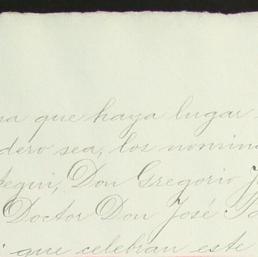 na que haya lugar
dero sea, los nomina
tegui, Don Gregorio J
Doctor Don José
que celebran este